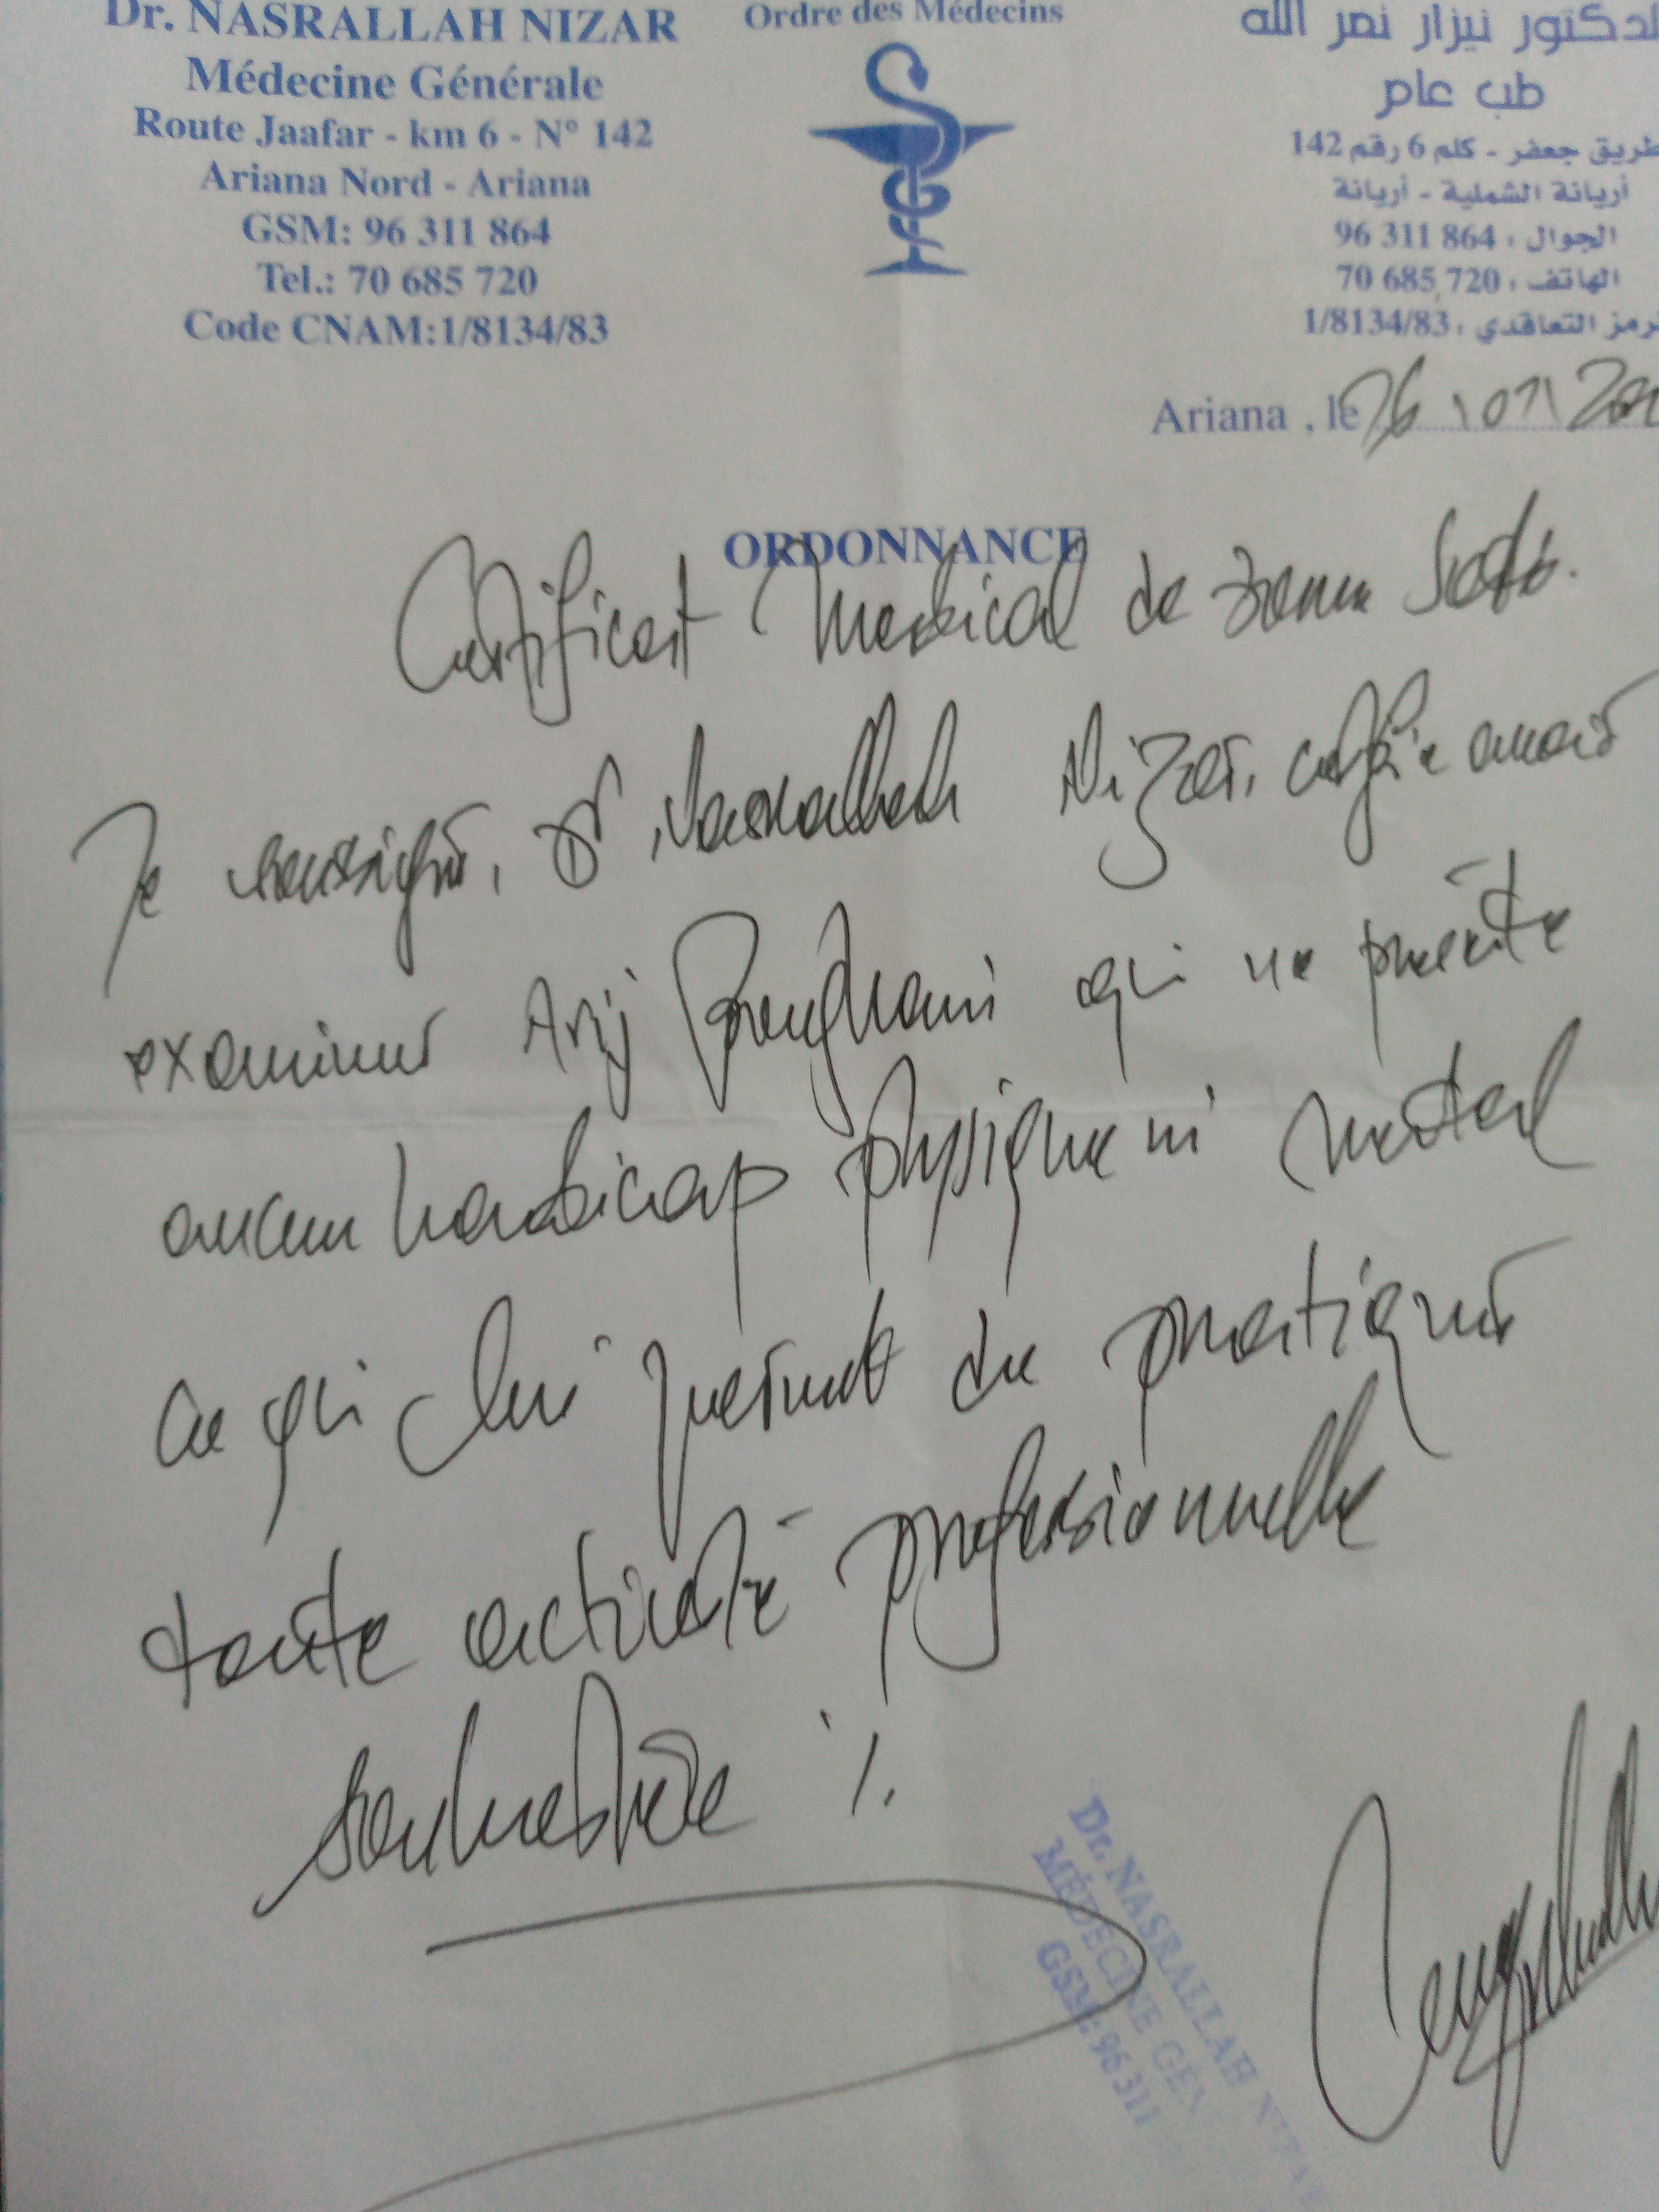 Dr. NASRALLAH NIZAR
Médecine Générale
Route Jaafar - km 6 - N° 142
Ariana Nord - Ariana
GSM: 96 311 864
Tel.: 70 685 720
Code CNAM:1/8134/83
Ordre des Médecins
الدكتور نيزار نصر الله
طب عام
طريق جعفر - كلم 6 رقم 142
أريانة الشملية - أريانة
الجوال : 96 311 864
الهاتف : 70 685 720
الرمز التعاقدي : 1/8134/83
Ariana , le 26 \ 07 \
ORDONNANCE
Certificat Medical de bonne Santé.
Je soussigné, Dr Nasrallah Nizar, certifie avoir
examiner Arij qui ne présente
aucun handicap physique ni mental
ce qui lui permet de pratiquer
toute activité professionnelle
souhaitée ./.
Dr. NASRALLAH
MÉDECINE GÉN
GSM: 96 311